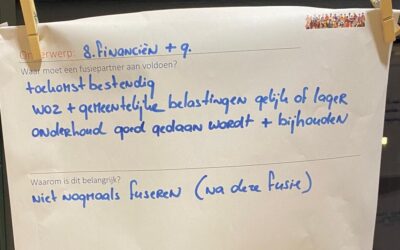 Onderwerp: 8. Financiën + 9.
Waar moet een fusiepartner aan voldoen?
toekomstbestendig
WOZ + gemeentelijke belastingen gelijk of lager
onderhoud goed gedaan wordt + bijhouden
Waarom is dit belangrijk?
niet nogmaals fuseren (na deze fusie)